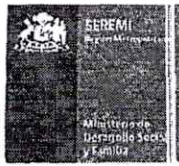 SEREMI
Región Metropolitana
Ministerio de
Desarrollo Social
y Familia